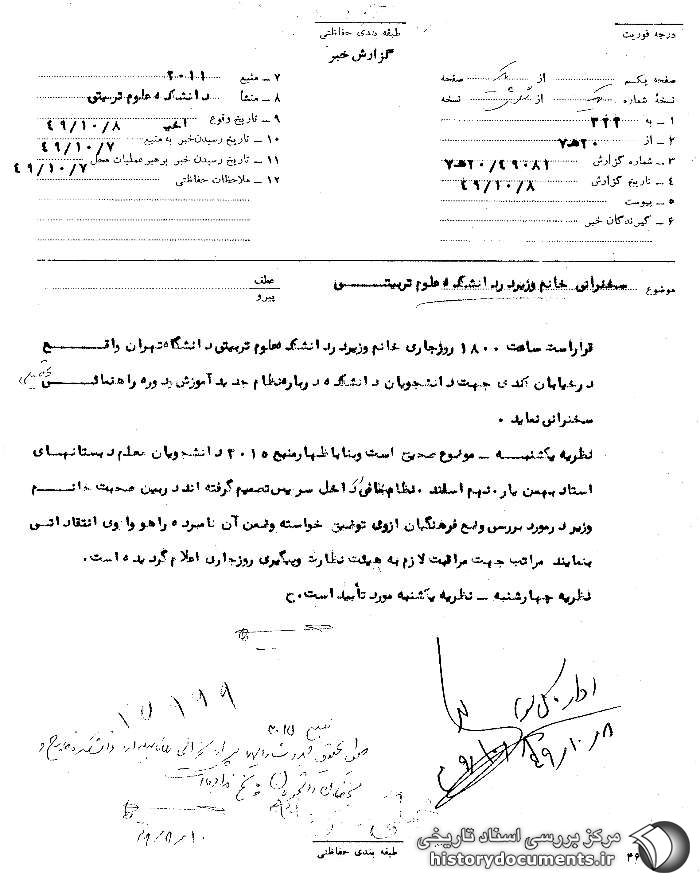 درجه فوریت
طبقه بندی حفاظتی
گزارش خبر
صفحه یکم از یک صفحه
نسخه شماره یک از نسخه
۱ ـ به ۳۲۲
۲ ـ از ۲۰ هـ ۷
۳ ـ شماره گزارش ۲۰/۴۹۰۸۱ هـ ۷
۴ ـ تاریخ گزارش ۴۹/۱۰/۸
۵ ـ پیوست
۶ ـ گیرندگان خبر
۷ ـ منبع ۲۰۱۱
۸ ـ منشأ دانشکده علوم تربیتی
۹ ـ تاریخ وقوع ۴۹/۱۰/۸
۱۰ ـ تاریخ رسیدن خبر به منبع ۴۹/۱۰/۷
۱۱ ـ تاریخ رسیدن خبر برهبر عملیات محل ۴۹/۱۰/۷
۱۲ ـ ملاحظات حفاظتی
موضوع سخنرانی خانم وزیر در دانشکده علوم تربیتی
عطف
پیرو
قرار است ساعت ۱۸۰۰ روزجاری خانم وزیر در دانشکده علوم تربیتی دانشگاه تهران واقع
در خیابان کندی جهت دانشجویان دانشکده درباره نظام جدید آموزش دوره راهنمائی تحصیلی
سخنرانی نماید .
نظریه یکشنبه ـ موضوع صحیح است وبنا باظهار منبع ۲۰۱۵ دانشجویان معلم دبستانهای
استاد بهمن یار . نهم اسفند . نظام داخل سرویس تصمیم گرفته اند در بین صحبت خانم
وزیر در مورد بررسی وضع فرهنگیان از وی توضیح خواسته وضمن آن نامبرده را هو و از وی انتقاداتی
بنمایند مراتب جهت مراقبت لازم به هیئت نظارت وپیگیری روزجاری اعلام گردیده است .
نظریه چهارشنبه ـ نظریه یکشنبه مورد تأیید است . ح
اداره کل سوم
۴۹/۱۰/۸
۱۵۱۹۹
منبع ۲۰۱۵
۴۹/۹/۱۰
طبقه بندی حفاظتی
مرکز بررسی اسناد تاریخی
historydocuments.ir